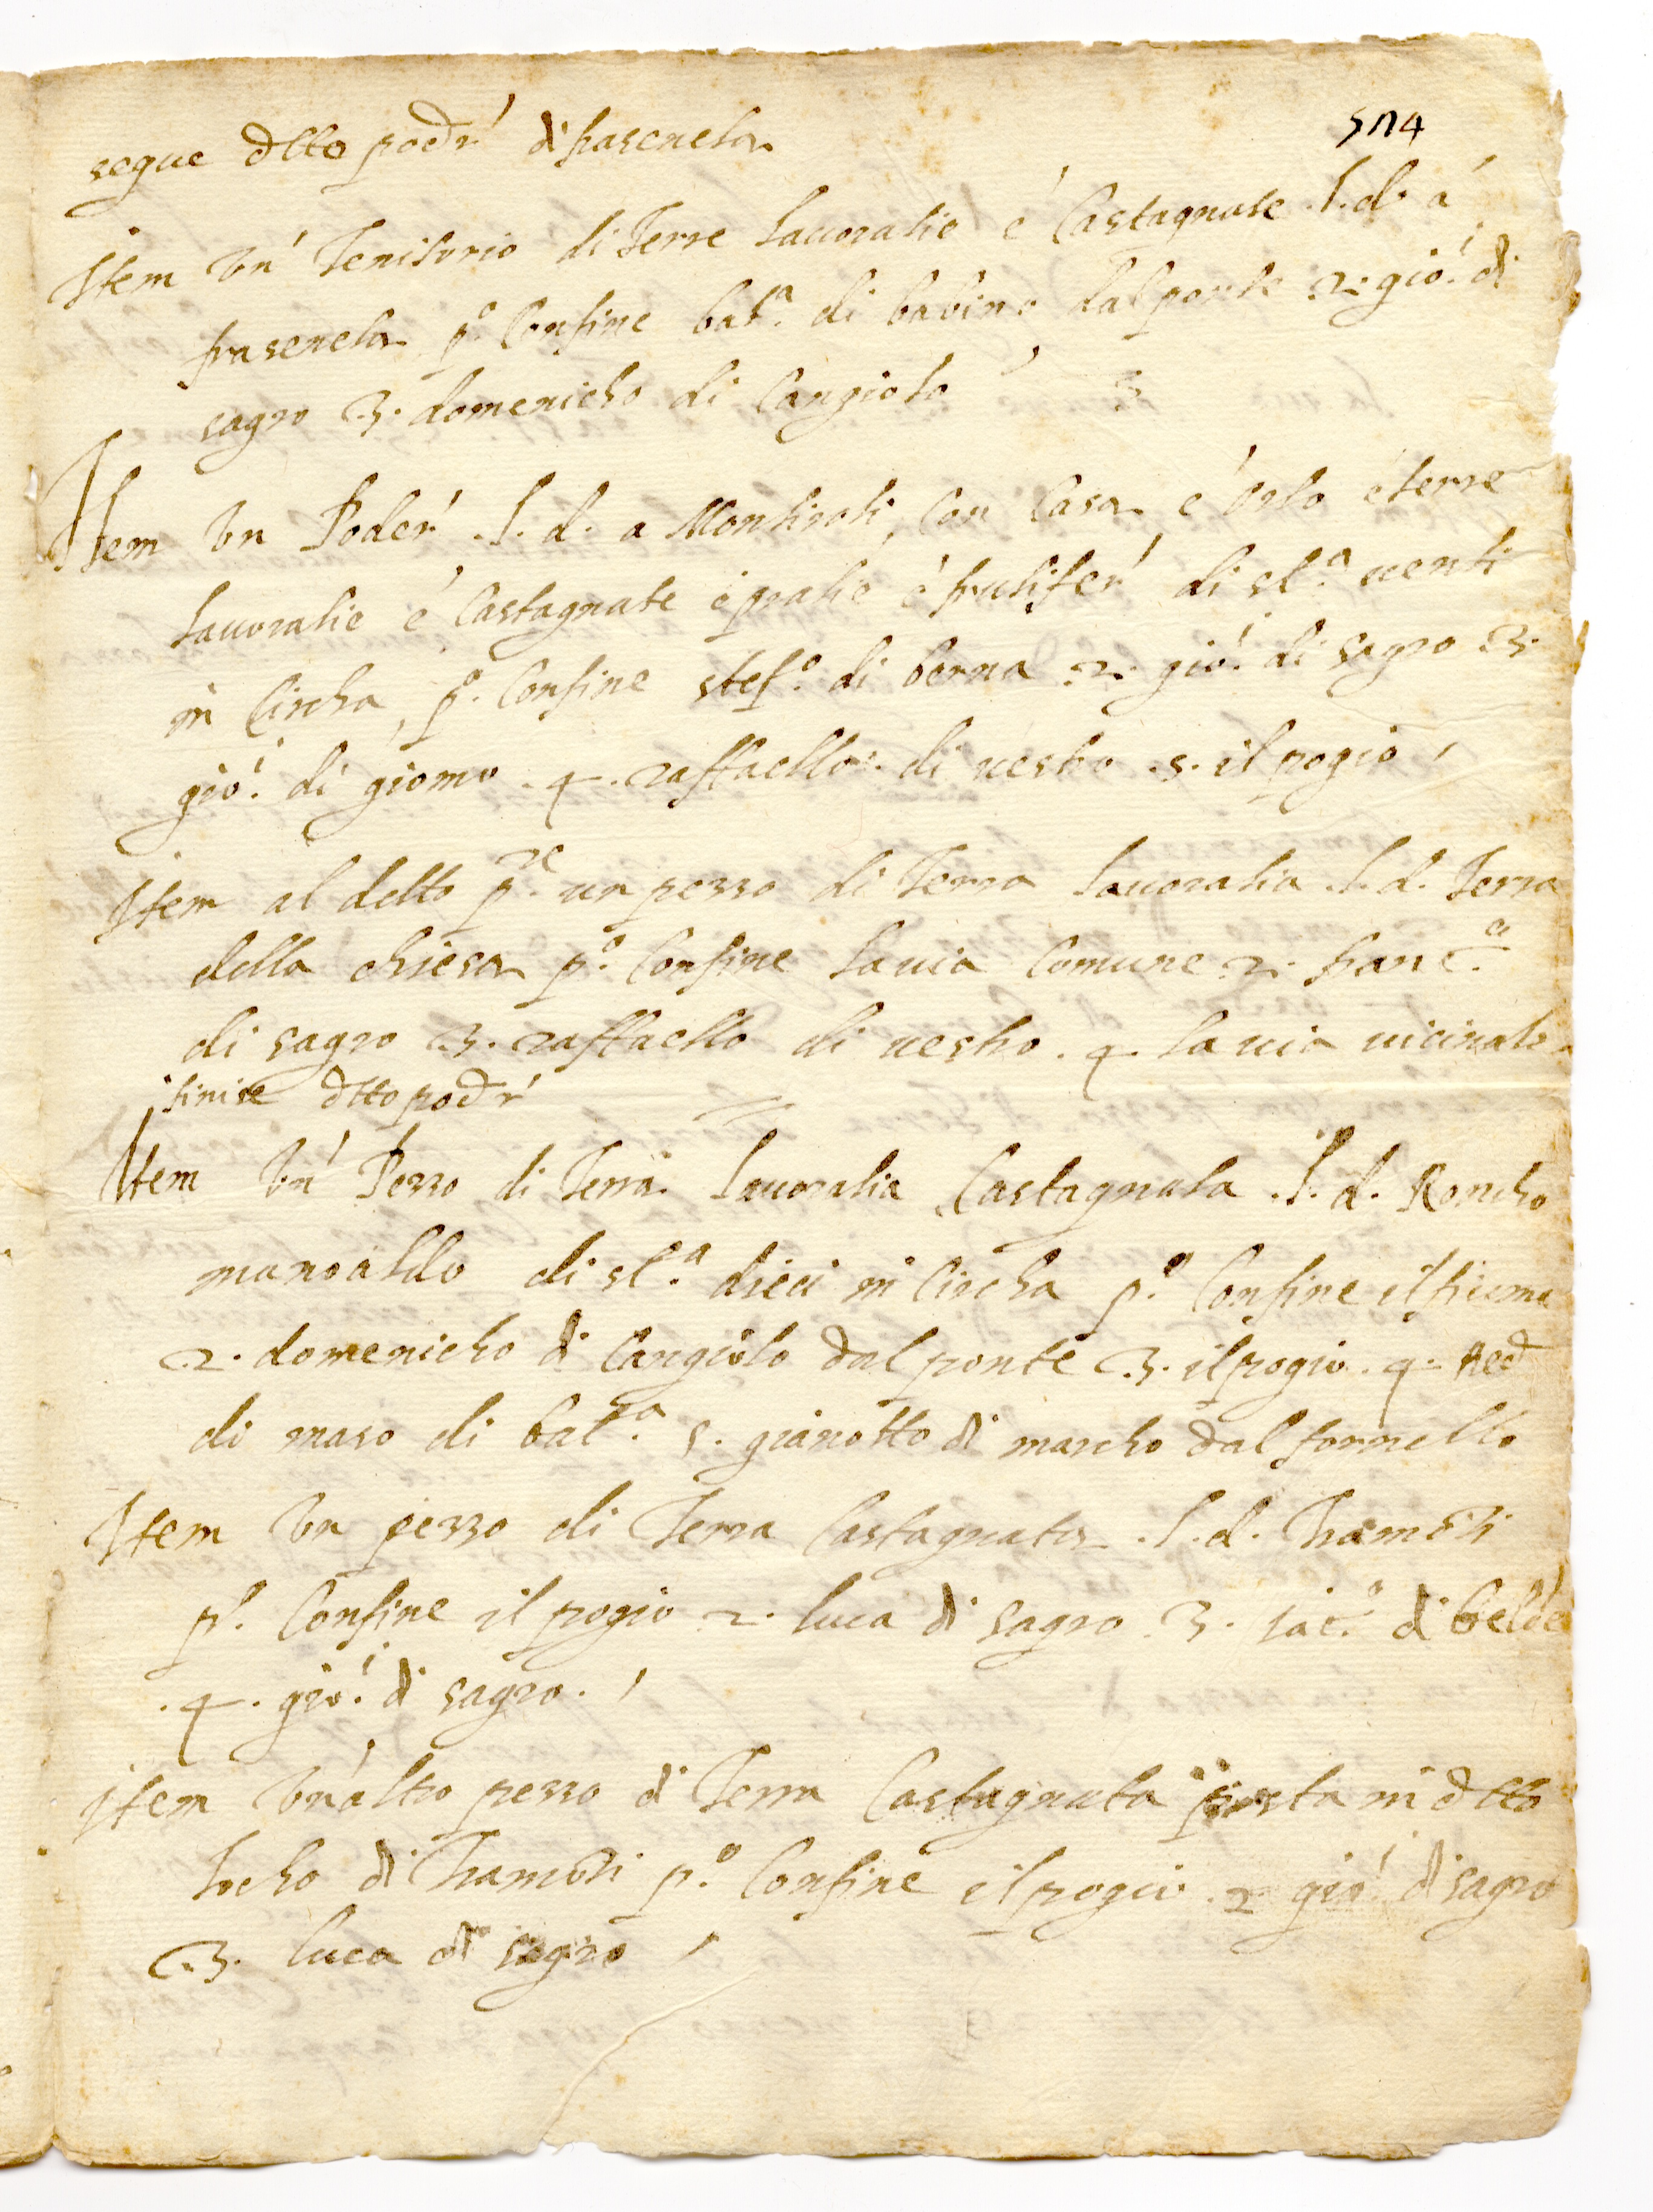 5114
segue dtto podr' di frasenela
Item Vn' Tenitorio di Terre lauoratie e' Castagnate .l.d. a'
frasenela p.º Confine bat.ª di babino dal ponte .2. gio.' di
sagro .3. domenicho di Cangiolo
Item Vn Poder' .l.d. a Montiroli, Con Casa e' orto e' terre
lauoratie e' Castagnate e pratie e' frutifer' di st.ª uenti
in Circha, p.º Confine stef.º di berna .2. gio.' di sagro .3.
gio.' di giomo .4. raffaello di uestro .5. il pogio
Item al detto p.re un pezzo di Terra lauoratia .l.d. Terra
della chiesa p.º Confine la uia Comune .2. franc.º
di sagro .3. raffaello di uestro .4. la uia uicinale
finise dtto podr'
Item Vn' Pezzo di Terra Lauoratia Castagnata .l.d. Roncho
manoaldo di st.ª dieci in Circha p.º Confine il fiume
.2. domenicho di Cangiolo dal ponte .3. il pogio .4. Red
di maso di bat.ª 5. gianotto di marcho dal fornello
Item Vn pezzo di Terra Castagnata .l.d. Tramoti
p.º Confine il pogio .2. luca di sagro .3. iac.º di belde
.4. gio.' di sagro.
item Vn'altro pezzo di Terra Castagnata posta in dtto
locho di Tramoti p.º Confine il pogio .2. gio.' di sagro
.3. luca di sagro